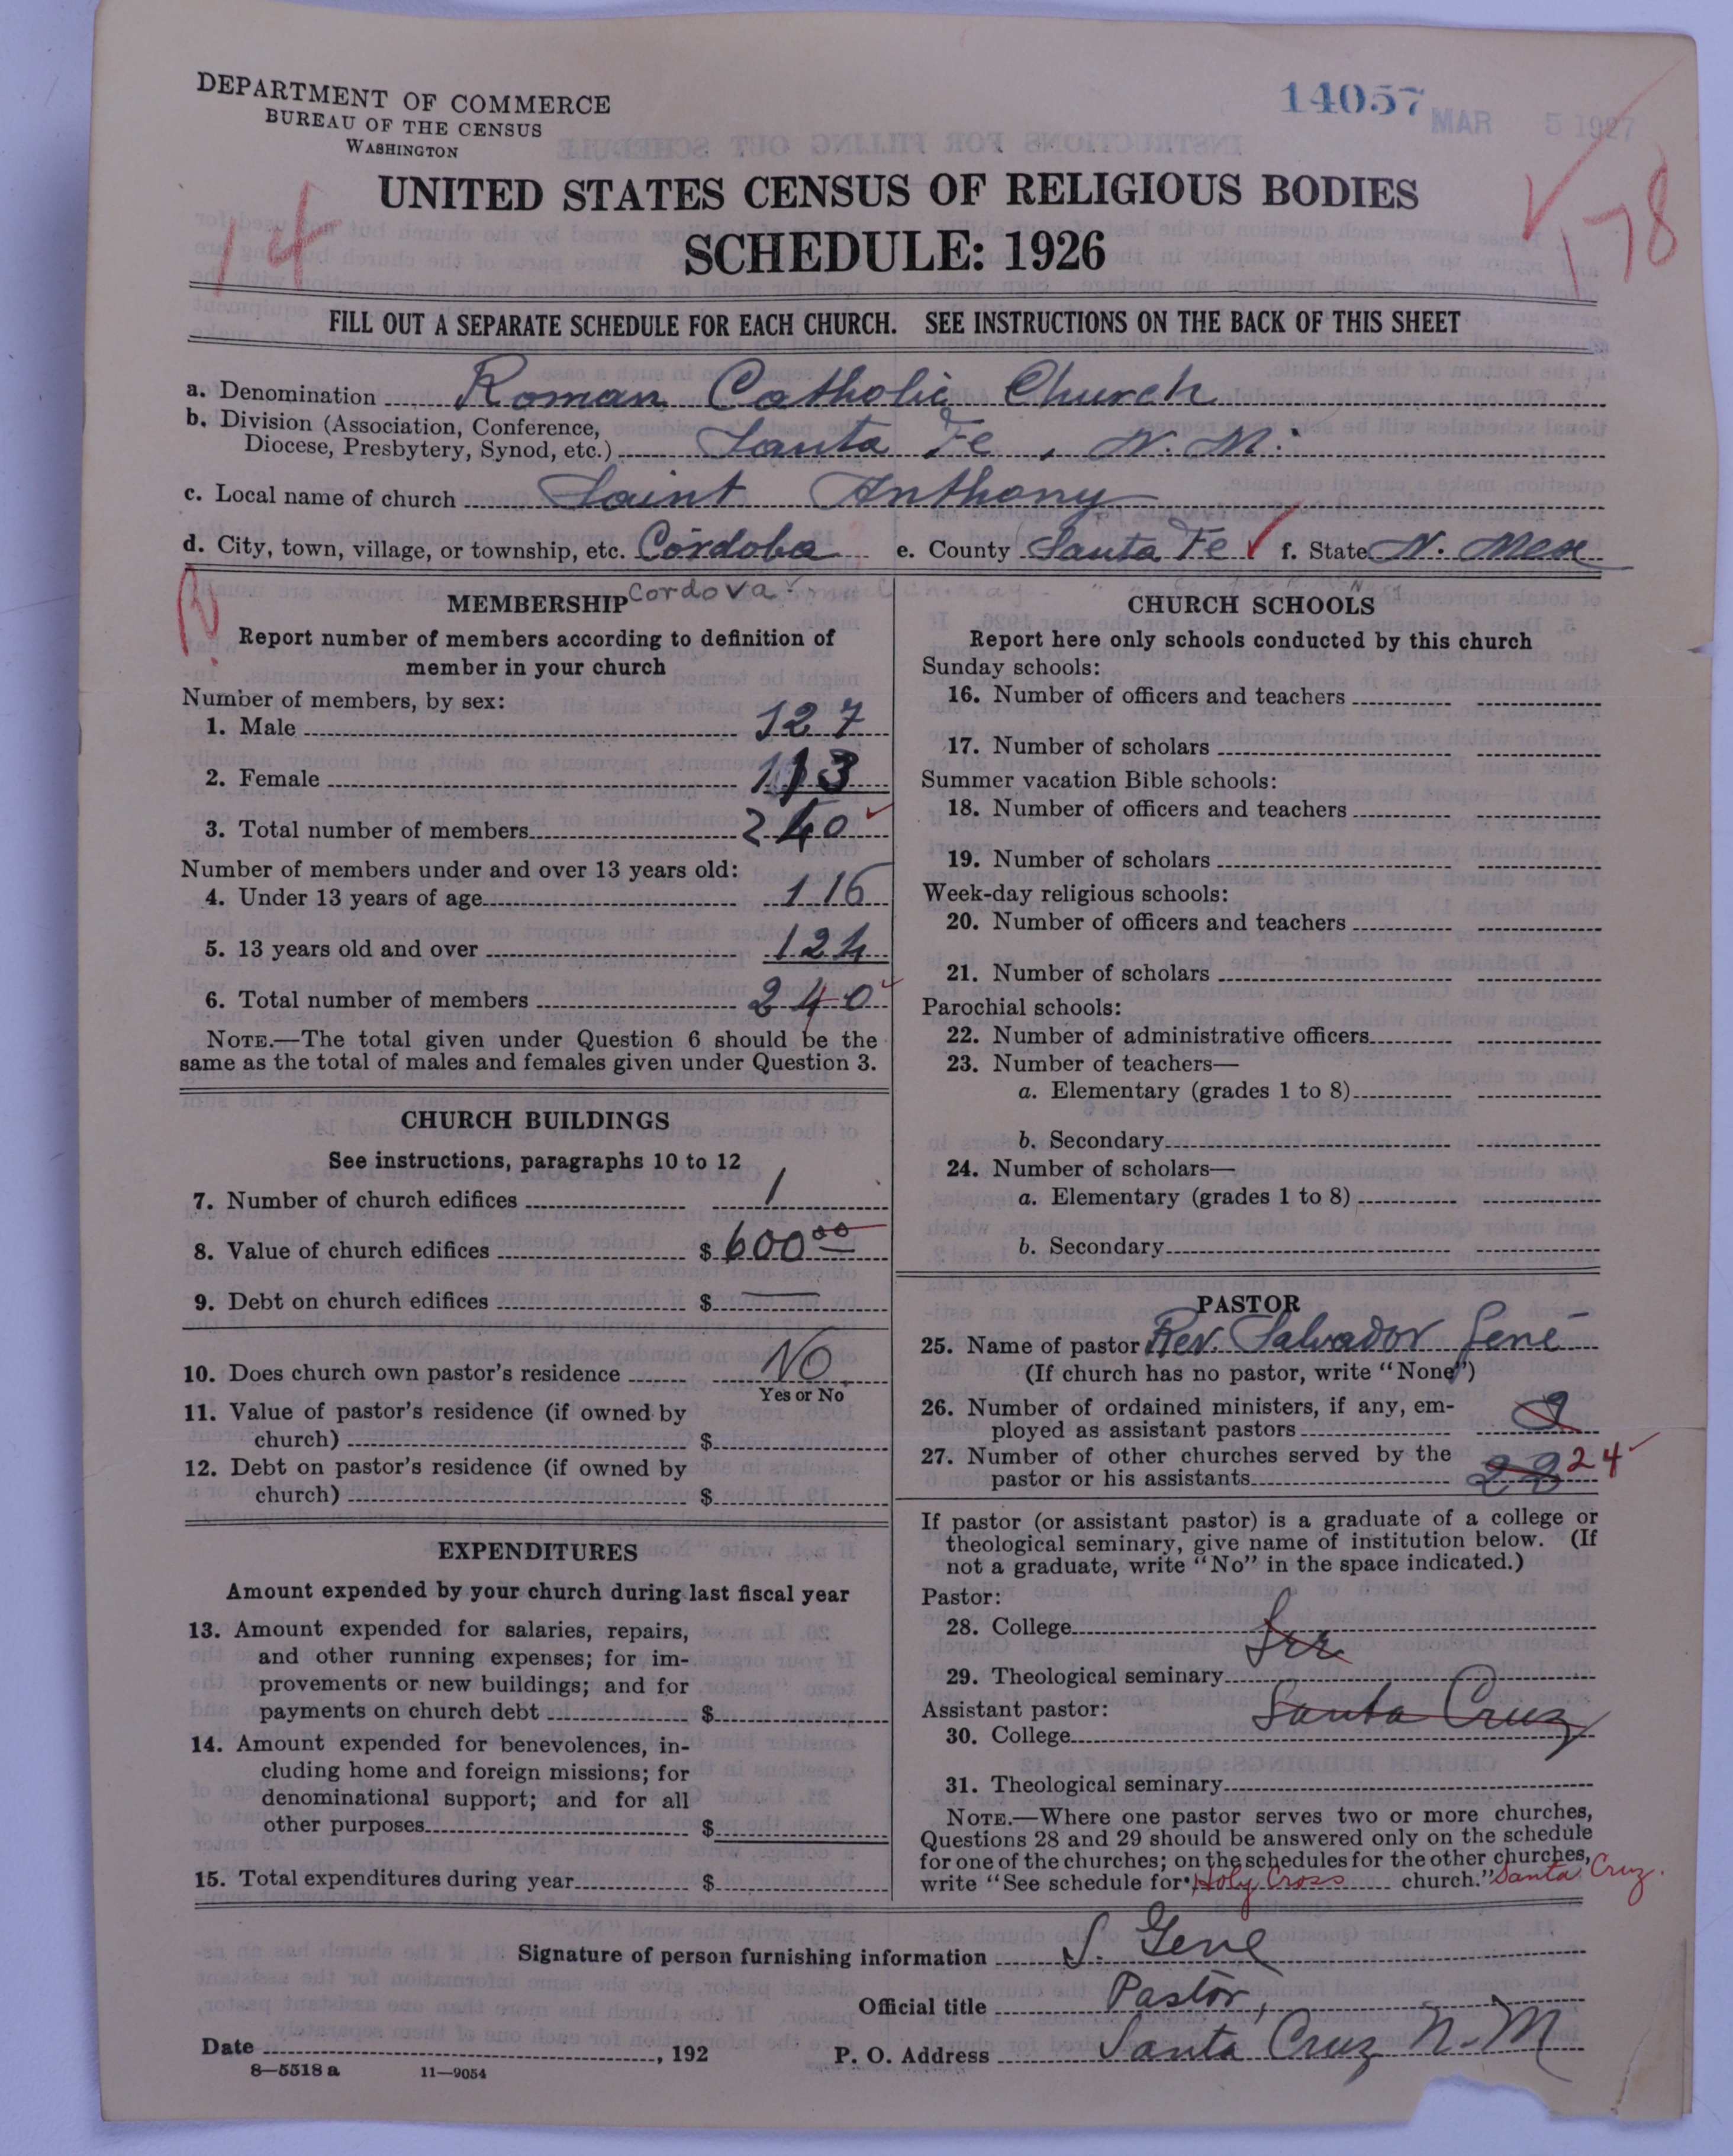 DEPARTMENT OF COMMERCE
BUREAU OF THE CENSUS
WASHINGTON
14057
MAR 5 1927
UNITED STATES CENSUS OF RELIGIOUS BODIES
14
178
SCHEDULE: 1926
FILL OUT A SEPARATE SCHEDULE FOR EACH CHURCH. SEE INSTRUCTIONS ON THE BACK OF THIS SHEET
a. Denomination Roman Catholic Church
b. Division (Association, Conference,
Diocese, Presbytery, Synod, etc.) Santa Fe, N. M.
c. Local name of church Saint Anthony
d. City, town, village, or township, etc. Cordoba e. County Santa Fe ✓ f. State N. Mex
Cordova
MEMBERSHIP
Report number of members according to definition of
member in your church
Number of members, by sex:
1. Male 127
2. Female 113
3. Total number of members 240
Number of members under and over 13 years old:
4. Under 13 years of age 116
5. 13 years old and over 124
6. Total number of members 240
NOTE.—The total given under Question 6 should be the
same as the total of males and females given under Question 3.
CHURCH BUILDINGS
See instructions, paragraphs 10 to 12
7. Number of church edifices 1
8. Value of church edifices $ 600.00
9. Debt on church edifices $ —
10. Does church own pastor's residence No
Yes or No
11. Value of pastor's residence (if owned by
church) $
12. Debt on pastor's residence (if owned by
church) $
EXPENDITURES
Amount expended by your church during last fiscal year
13. Amount expended for salaries, repairs,
and other running expenses; for im-
provements or new buildings; and for
payments on church debt $
14. Amount expended for benevolences, in-
cluding home and foreign missions; for
denominational support; and for all
other purposes $
15. Total expenditures during year $
CHURCH SCHOOLS
Report here only schools conducted by this church
Sunday schools:
16. Number of officers and teachers
17. Number of scholars
Summer vacation Bible schools:
18. Number of officers and teachers
19. Number of scholars
Week-day religious schools:
20. Number of officers and teachers
21. Number of scholars
Parochial schools:
22. Number of administrative officers
23. Number of teachers—
a. Elementary (grades 1 to 8)
b. Secondary
24. Number of scholars—
a. Elementary (grades 1 to 8)
b. Secondary
PASTOR
25. Name of pastor Rev. Salvador Gené
(If church has no pastor, write "None")
26. Number of ordained ministers, if any, em-
ployed as assistant pastors
27. Number of other churches served by the
pastor or his assistants 24
If pastor (or assistant pastor) is a graduate of a college or
theological seminary, give name of institution below. (If
not a graduate, write "No" in the space indicated.)
Pastor:
28. College
29. Theological seminary
Assistant pastor: Santa Cruz
30. College
31. Theological seminary
NOTE.—Where one pastor serves two or more churches,
Questions 28 and 29 should be answered only on the schedule
for one of the churches; on the schedules for the other churches,
write "See schedule for Holy Cross church." Santa Cruz.
Signature of person furnishing information S. Gene
Official title Pastor,
Date , 192
P. O. Address Santa Cruz N. M
8—5518 a 11—9054